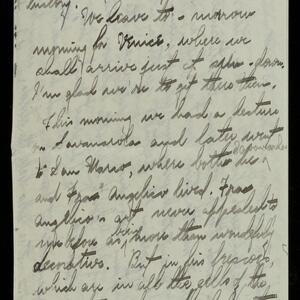 We leave to-morrow
morning for Venice, where we
shall arrive just at sun-down.
I'm glad we're to get there then.
This morning we had a lecture
on Savonarola and later went
to San Marco, where both he
and Fra Angelico lived. Fra
Angelico's art never appealed to
me before as more than wonderfully
decorative. But in his frescoes,
which are in all the cells of the